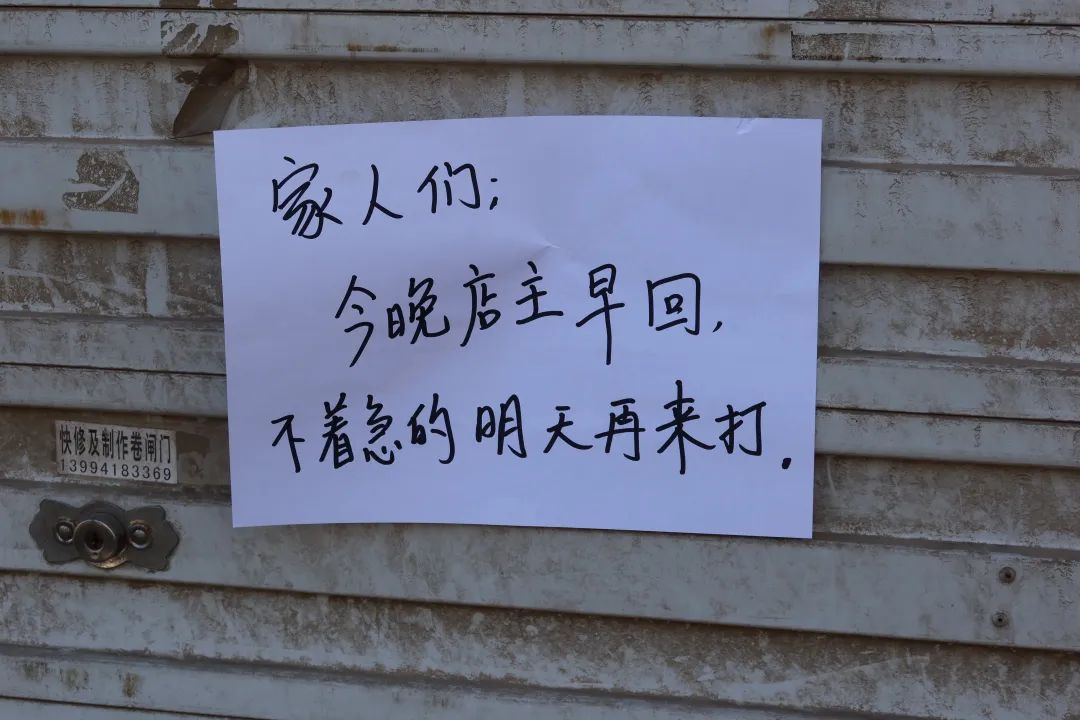 家人们;
今晚店主早回,
不着急的明天再来打.
快修及制作卷闸门
13994183369